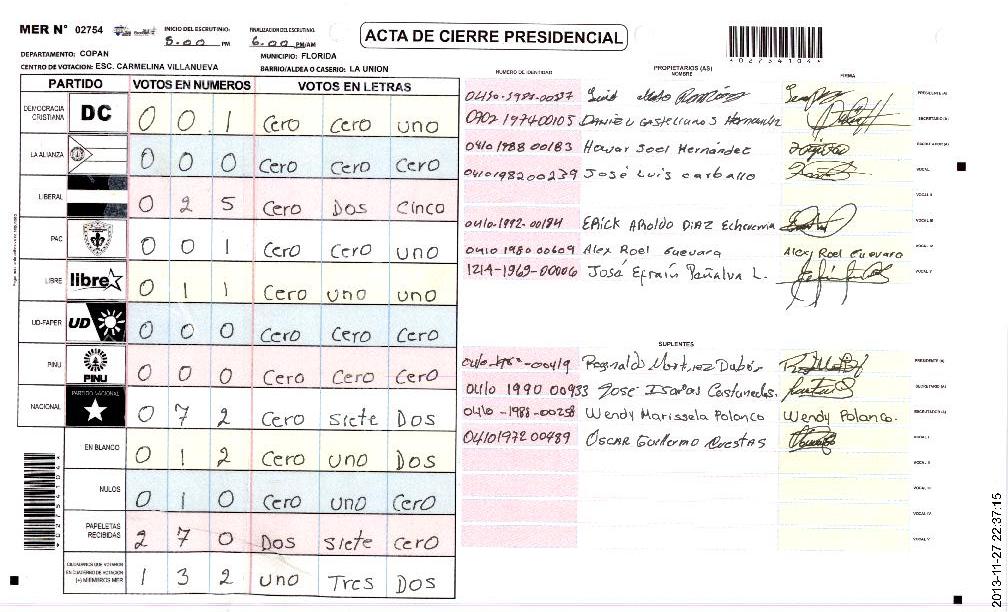 MER N° 02754
INICIO DEL ESCRUTINIO: 5.00 PM
FINALIZACION DEL ESCRUTINIO: 6.00 PM/AM
ACTA DE CIERRE PRESIDENCIAL
DEPARTAMENTO: COPAN
MUNICIPIO: FLORIDA
CENTRO DE VOTACION: ESC. CARMELINA VILLANUEVA
BARRIO/ALDEA O CASERIO: LA UNION
*02754104*
PARTIDO VOTOS EN NUMEROS VOTOS EN LETRAS
DEMOCRACIA CRISTIANA DC 0 0 1 Cero Cero uno
LA ALIANZA 0 0 0 Cero Cero Cero
LIBERAL 0 2 5 Cero Dos Cinco
PAC 0 0 1 Cero Cero uno
LIBRE libre 0 1 1 Cero uno uno
UD-FAPER UD 0 0 0 Cero Cero Cero
PINU PINU 0 0 0 Cero Cero Cero
NACIONAL PARTIDO NACIONAL 0 7 2 Cero Siete Dos
EN BLANCO 0 1 2 Cero uno Dos
NULOS 0 1 0 Cero uno Cero
PAPELETAS RECIBIDAS 2 7 0 Dos Siete Cero
CIUDADANOS QUE VOTARON EN CUADERNO DE VOTACION (+) MIEMBROS MER 1 3 2 uno Tres Dos
NUMERO DE IDENTIDAD PROPIETARIOS (AS) NOMBRE FIRMA
PRESIDENTE (A)
0902 1974-00105 DANIEL Castellanos Hernandez SECRETARIO (A)
0410 1988 00183 Howar Joel Hernández ESCRUTADOR (A)
0410198200239 José Luis carballo VOCAL I
VOCAL II
0410-1992-00184 Erick Aroldo Diaz Echeverria VOCAL III
0410 1980 00609 Alex Roel Guevara Alex Roel Guevara VOCAL IV
1214-1969-00006 José Efraín Peñalva L. VOCAL V
SUPLENTES
Reynaldo Martinez PRESIDENTE (A)
0410 1990 00933 Jose Isaias Castaneda. SECRETARIO (A)
0410-1988-00258 Wendy Marissela Polanco Wendy Polanco. ESCRUTADOR (A)
0410197200489 Óscar Guillermo Cuestas VOCAL I
VOCAL II
VOCAL III
VOCAL IV
VOCAL V
*02754104*
2013-11-27 22:37:15